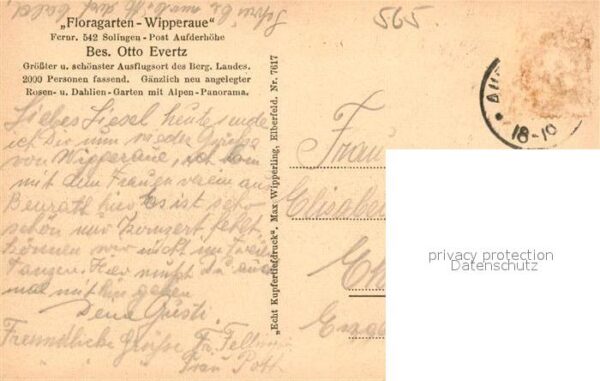 565
„Floragarten - Wipperaue“
Fernr. 542 Solingen - Post Aufderhöhe
Bes. Otto Evertz
Größter u. schönster Ausflugsort des Berg. Landes.
2000 Personen fassend. Gänzlich neu angelegter
Rosen- u. Dahlien-Garten mit Alpen-Panorama.
Liebes Liesel heute sende
ich Dir nun wieder Grüße
von Wipperaue, ich bin
mit dem Frauenverein aus
Benrath hier Es ist sehr
schön nur Konzert fehlt
können wir nicht im Freien
Tanzen. Hier mußt Du auch
mal mit hin gehen
Deine Gusti.
Freundliche Grüße Fr.
Frau Pott
„Echt Kupfertiefdruck“. Max Wipperling, Elberfeld. Nr. 7617
18-10
Frau
privacy protection
Datenschutz